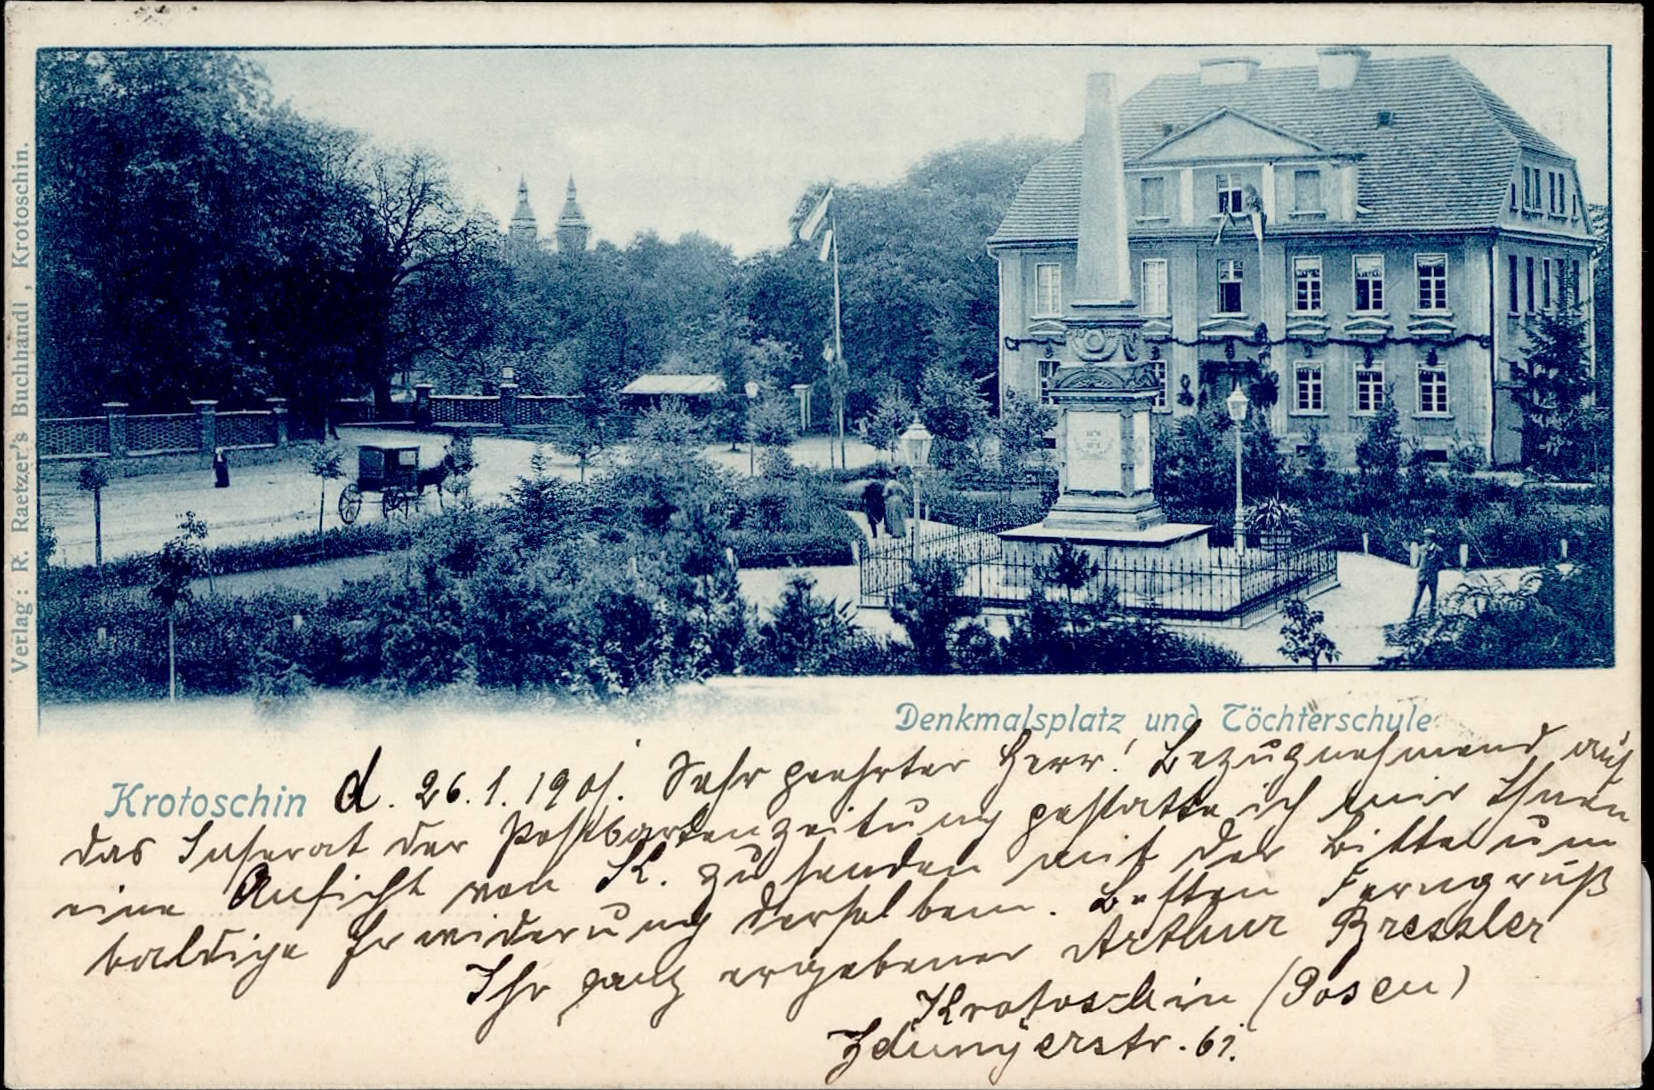 Verlag: R. Raetzer's Buchhandl, Krotoschin.
Denkmalsplatz und Töchterschule
Krotoschin d. 26.1.1901. Sehr geehrter Herr! Bezugnehmend auf
das Inserat der Postkartenzeitung gestatte ich mir Ihnen
eine Ansicht von K. zu senden mit der Bitte um
baldige Erwiderung derselben. Besten Ferngruß
Ihr ganz ergebener Arthur Bressler
Krotoschin (Posen)
Zdunyerstr. 61.